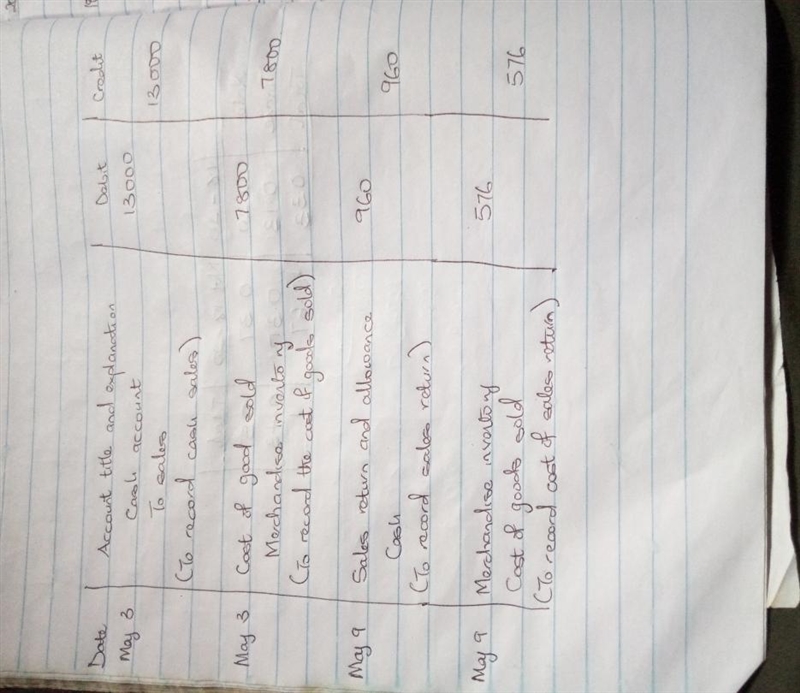 Date Account title and explanation Dabit Credit
May 3 Cash account 13000
To sales 13000
(To record cash sales)
May 3 Cost of good sold 7800
Merchandise inventory 7800
(To record the cost of goods sold)
May 9 Sales return and allowance 960
Cash 960
(To record sales return)
May 9 Merchandise inventory 576
Cost of goods sold 576
(To record cost of sales return)